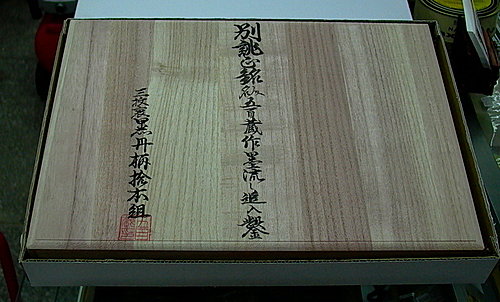 別誂正銘五百蔵作墨流し追入鑿
三枚裏黒丹柄拾本組